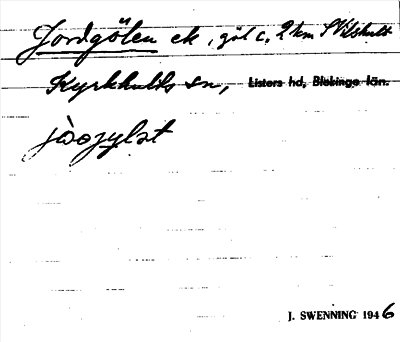 Jordgölen ek, göl c. 2 km S Vilshult
Kyrkhults sn, Listers hd, Blekinge län.
J. SWENNING 1946